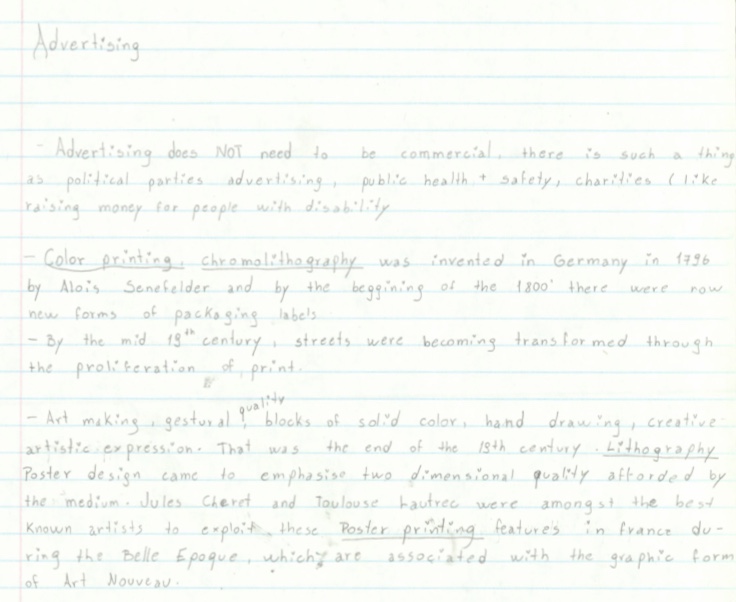 Advertising
- Advertising does NOT need to be commercial, there is such a thing
as political parties advertising, public health + safety, charities (like
raising money for people with disability
- Color printing, chromolithography was invented in Germany in 1796
by Alois Senefelder and by the beggining of the 1800' there were now
new forms of packaging labels.
- By the mid 19th century, streets were becoming transformed through
the proliferation of print.
- Art making, gestural quality, blocks of solid color, hand drawing, creative
artistic expression. That was the end of the 19th century. Lithography
Poster design came to emphasise two dimensional quality afforded by
the medium. Jules Cheret and Toulouse Lautrec were amongst the best
known artists to exploit these Poster printing features in france du-
ring the Belle Epoque, which are associated with the graphic form
of Art Nouveau.